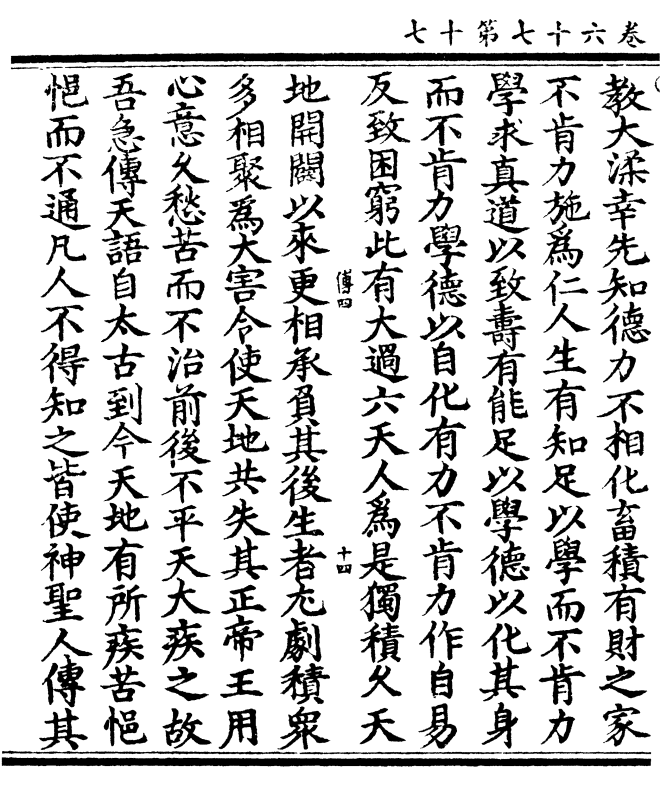 七十第七十六卷
教大深幸先知德力不相化畜積有財之家
不肯力施爲仁人生有知足以學而不肯力
學求真道以致壽有能足以學德以化其身
而不肯力學德以自化有力不肯力作自易
反致困窮此有大過六天人爲是獨積久天
傅四
十四
地開闢以來更相承負其後生者尤劇積衆
多相聚爲大害令使天地共失其正帝王用
心意久愁苦而不治前後不平天大疾之故
吾急傳天語自太古到今天地有所疾苦悒
悒而不通凡人不得知之皆使神聖人傳其